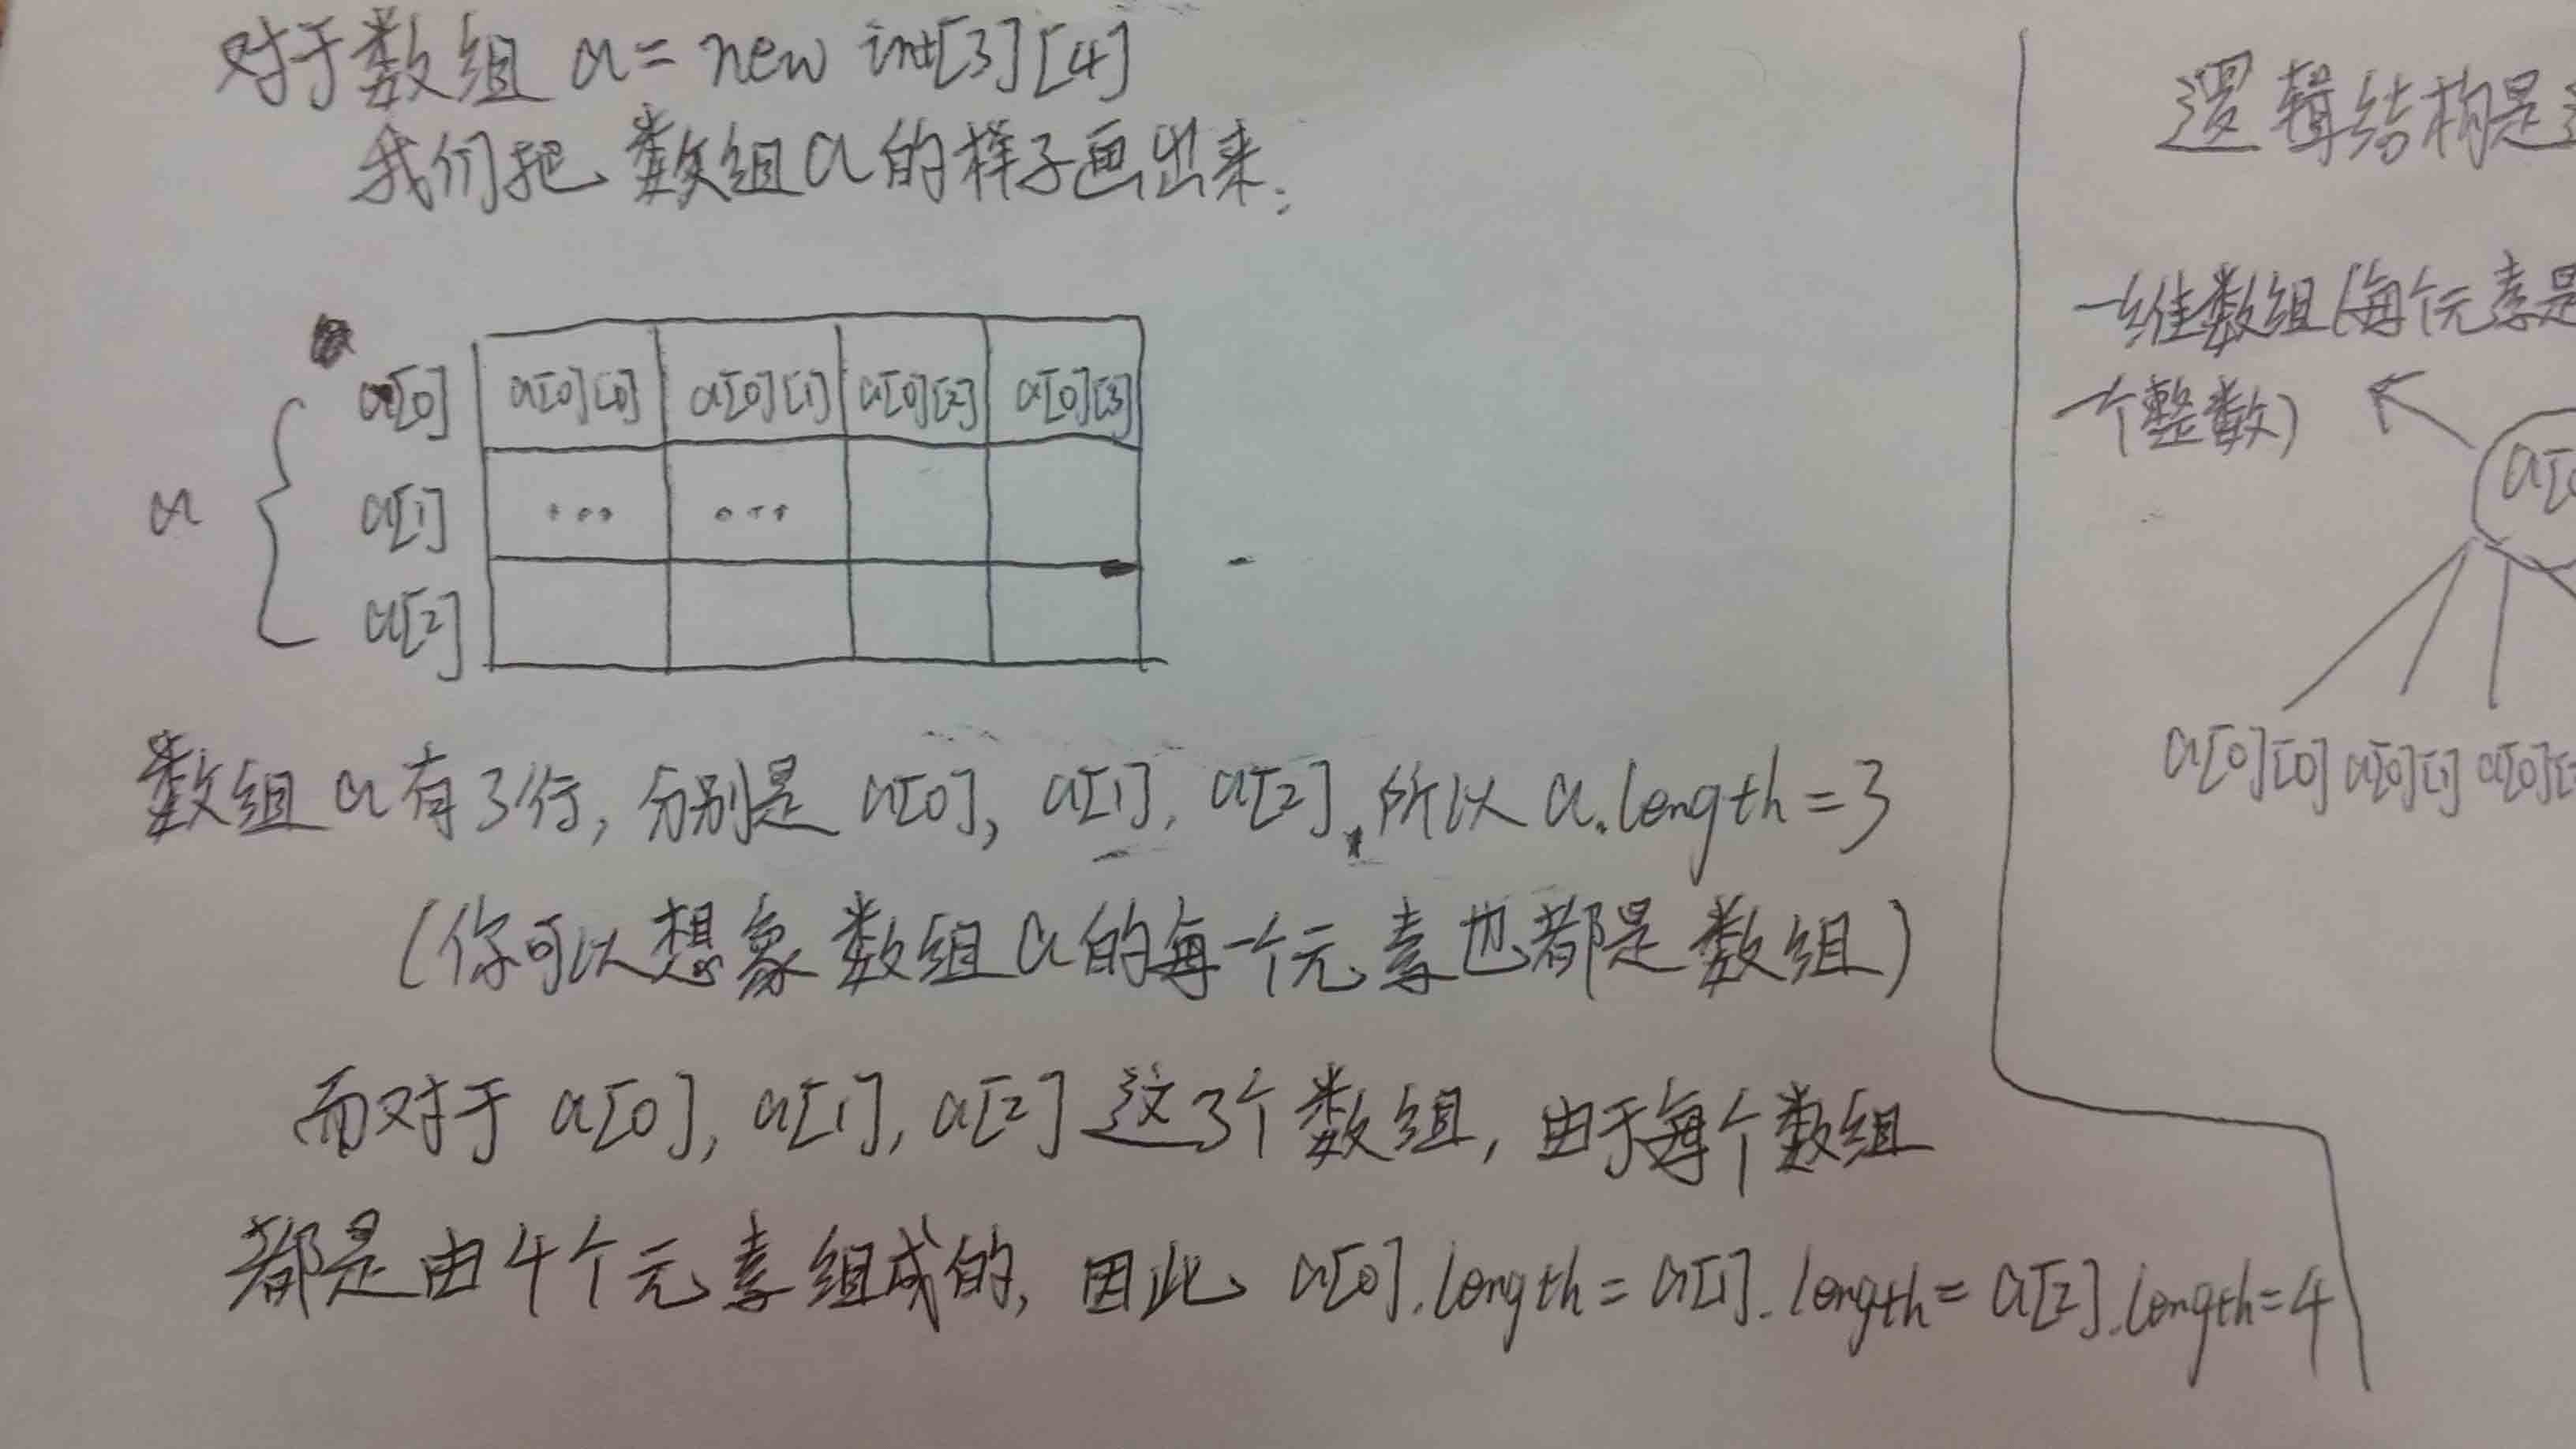 对于数组 a = new int[3][4]
我们把数组a的样子画出来.
a[0] a[0][0] a[0][1] a[0][2] a[0][3]
a a[1] ... ...
a[2]
数组a有3行, 分别是 a[0], a[1], a[2], 所以 a.length = 3
(你可以想象数组a的每一个元素也都是数组)
而对于 a[0], a[1], a[2] 这3个数组, 由于每个数组
都是由4个元素组成的, 因此 a[0].length = a[1].length = a[2].length = 4
逻辑结构是
一维数组(每个元素是
一个整数)
a[0][0] a[0][1] a[0]